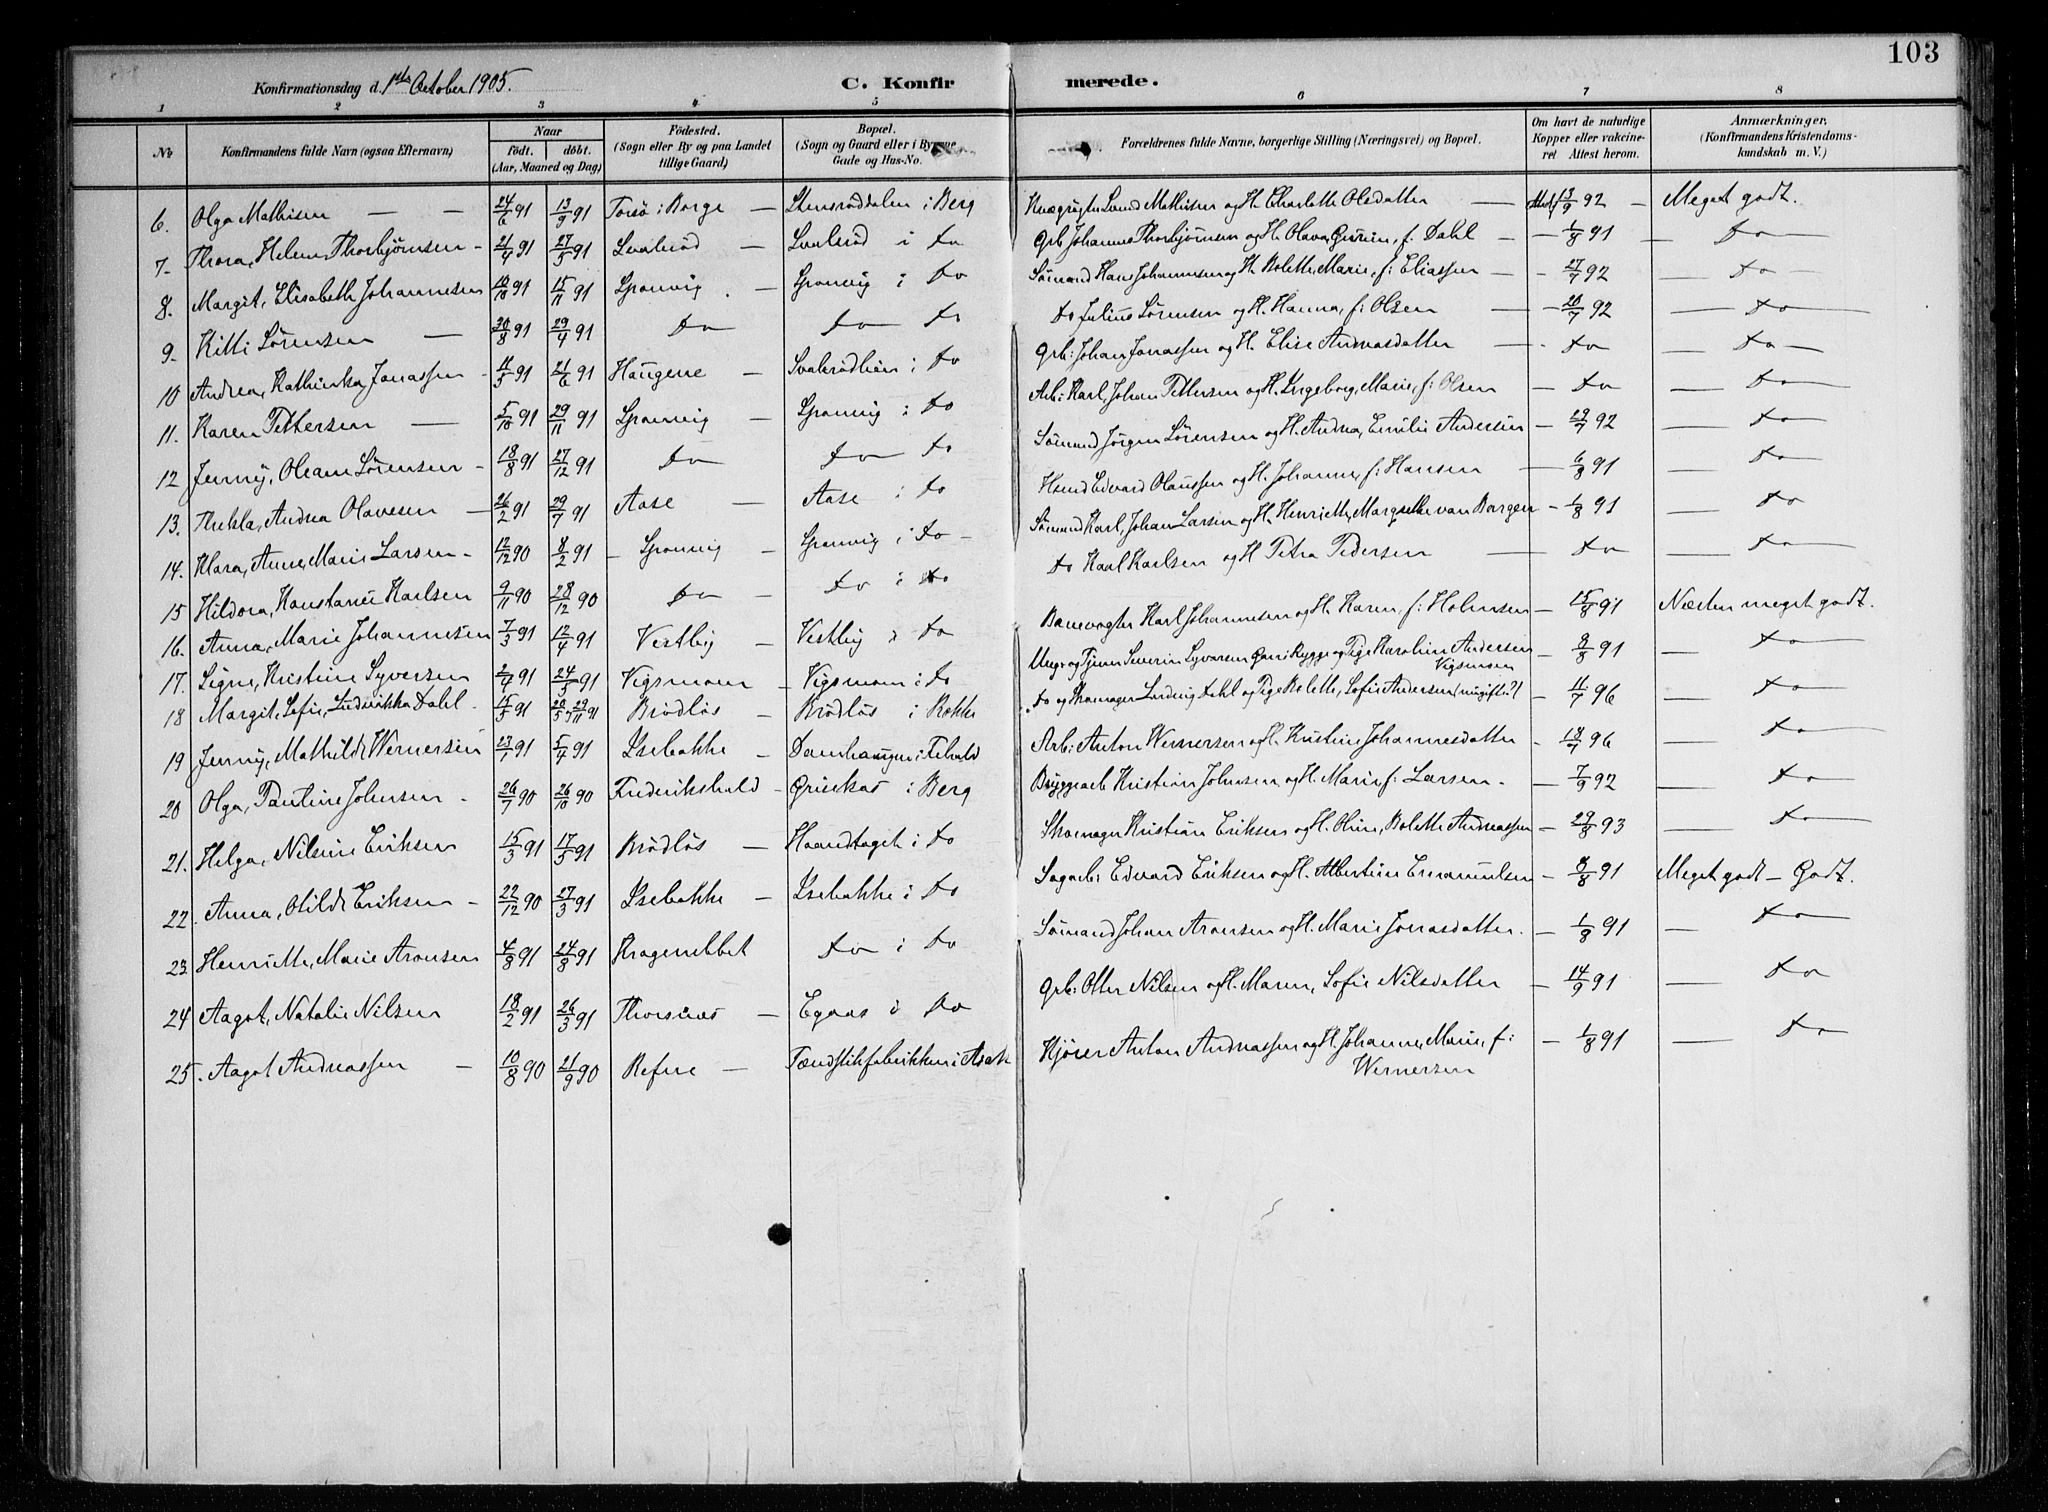 103
Konfirmationsdag d. 1ste October 1905. C. Konfirmerede.
1 2 3 4 5 6 7 8
No Konfirmandens fulde Navn (ogsaa Efternavn) Naar Födt. döbt. (Aar, Maaned og Dag) Födested. (Sogn eller By og paa Landet tillige Gaard) Bopæl. (Sogn og Gaard eller i Byerne Gade og Hus-No. Forældrenes fulde Navne, borgerlige Stilling (Næringsvei) og Bopæl. Om havt de naturlige Kopper eller vakcineret Attest herom. Anmærkninger, (Konfirmandens Kristendomskundskab m. V.)
6. Olga Mathisen — — 24/6 91 13/9 91 Torsö i Borge — Stensröddalen i Berg Mathisen og H. Charlotte Olsdatter — 13/9 92 — Meget godt.
7. Thora, Helene Thorbjörnsen - 21/4 91 27/5 91 Svalröd — Svaleröd i do Grb. Johannes Thorbjörnsen og H. Olava, f. Dahl — 1/8 91 — do —
8. Margit, Elisabeth Johannesen 10/10 91 15/11 91 Sponvig — Sponvig i do Sömand Hans Johannesen og H. Bolette, Marie, f: Eliassen — 27/7 92 — do
9. Kitti Sörensen — 30/8 91 29/4 91 do do do do Julius Sörensen og H. Hanna, f: Olsen — 20/7 92 — do —
10 Andrea, Kathinka Jonassen - 11/5 91 21/6 91 Haugene — Svalerödlien i do Grb: Johan Jonassen og H. Elise Andreasdatter — do — do —
11. Karen Pettersen — 5/10 91 29/11 91 Sponvig — Sponvig i do Arb: Karl, Johan Pettersen og H. Ingeborg, Marie, f: Olsen — do — do —
12 Jenny, Oleane Sörensen - 18/8 91 27/12 91 do do do Sömand Jörgen Sörensen og H. Andrea, Emilie Andersen — 19/7 92 — do —
13. Thekla, Andrea Olavesen — 26/2 91 29/7 91 Aase — Aase i do Edvard Olaussen og H. Johanne, f: Hansen — 6/8 91 — do —
14. Klara, Anne, Marie Larsen - 12/12 90 8/2 91 Sponvig — Sponvig i do - Sömand Karl, Johan Larsen og H. Henriette, Margrethe van Bargen — 1/8 91 — do
15 Hildora, Konstanse Karlsen 9/11 90 28/12 90 do — do i do do Karl Karlsen og H Petra Pedersen — do — do —
16. Anna, Marie Johannesen 7/3 91 12/4 91 Vestby — Vestby i do Banevogter Karl Johannesen og H. Karen, f: Holmsen — 15/8 91 Næsten meget godt.
17. Signe, Kristine Syversen 2/4 91 24/5 91 Vigsmoen — Vigsmoen i do Ungk og Tjener Severin Syversen Rygge og Pige Karoline Andersen Vigsmoen — 8/8 91 — do —
18 Margit, Sofie, Ludvikka Dahl. 15/3 91 20/5 29/11 91 Brödlös — Brödlös i Rokke do og Skomager Ludvig Dahl og Pige Bolette, Sofie Andersen (ungift?) — 11/7 96 — do
19 Jenny, Mathilde Wernersen 23/1 91 5/4 91 Isebakke — Damhaugen i Fhald Arb: Anton Wernersen og H. Kristine Johannesdatter — 18/7 96 — do —
20 Olga, Pauline Johnsen - 26/7 90 26/10 90 Frederikshald - Grisekas i Berg Bryggearb Kristian Johnsen og H. Marie f: Larsen - — 7/9 92 — do —
21. Helga, Nilsine Eriksen 15/3 91 17/5 91 Brödlös — Haandtaget i do Skomager Kristian Eriksen og H. Oline, Bolette Andreassen — 29/8 93 — do —
22. Anna, Otilde Eriksen - 22/12 90 27/3 91 Isebakke — Isebakke i do Sagarb: Edvard Eriksen og H. Albertine Emanuelsen — 8/8 91 Meget godt — Godt.
23. Henriette, Marie Aronsen 4/8 91 24/8 91 Kragenebbet do i do Sömand Johan Aronsen og H. Marie Jonasdatter. — 1/8 91 — do —
24 Aagot, Natalie Nilsen 18/2 91 26/3 91 Thorsnes — Egnas i do Grb: Otter Nilsen og H. Maren, Sofie Nilsdatter — 14/9 91 — do
25. Aagot Andreassen — 10/8 90 21/9 90 Refne — Tændstikfabrikken i Asak Kjörer Anton Andreassen og H. Johanne, Marie, f: Wernersen — 1/8 91 — do